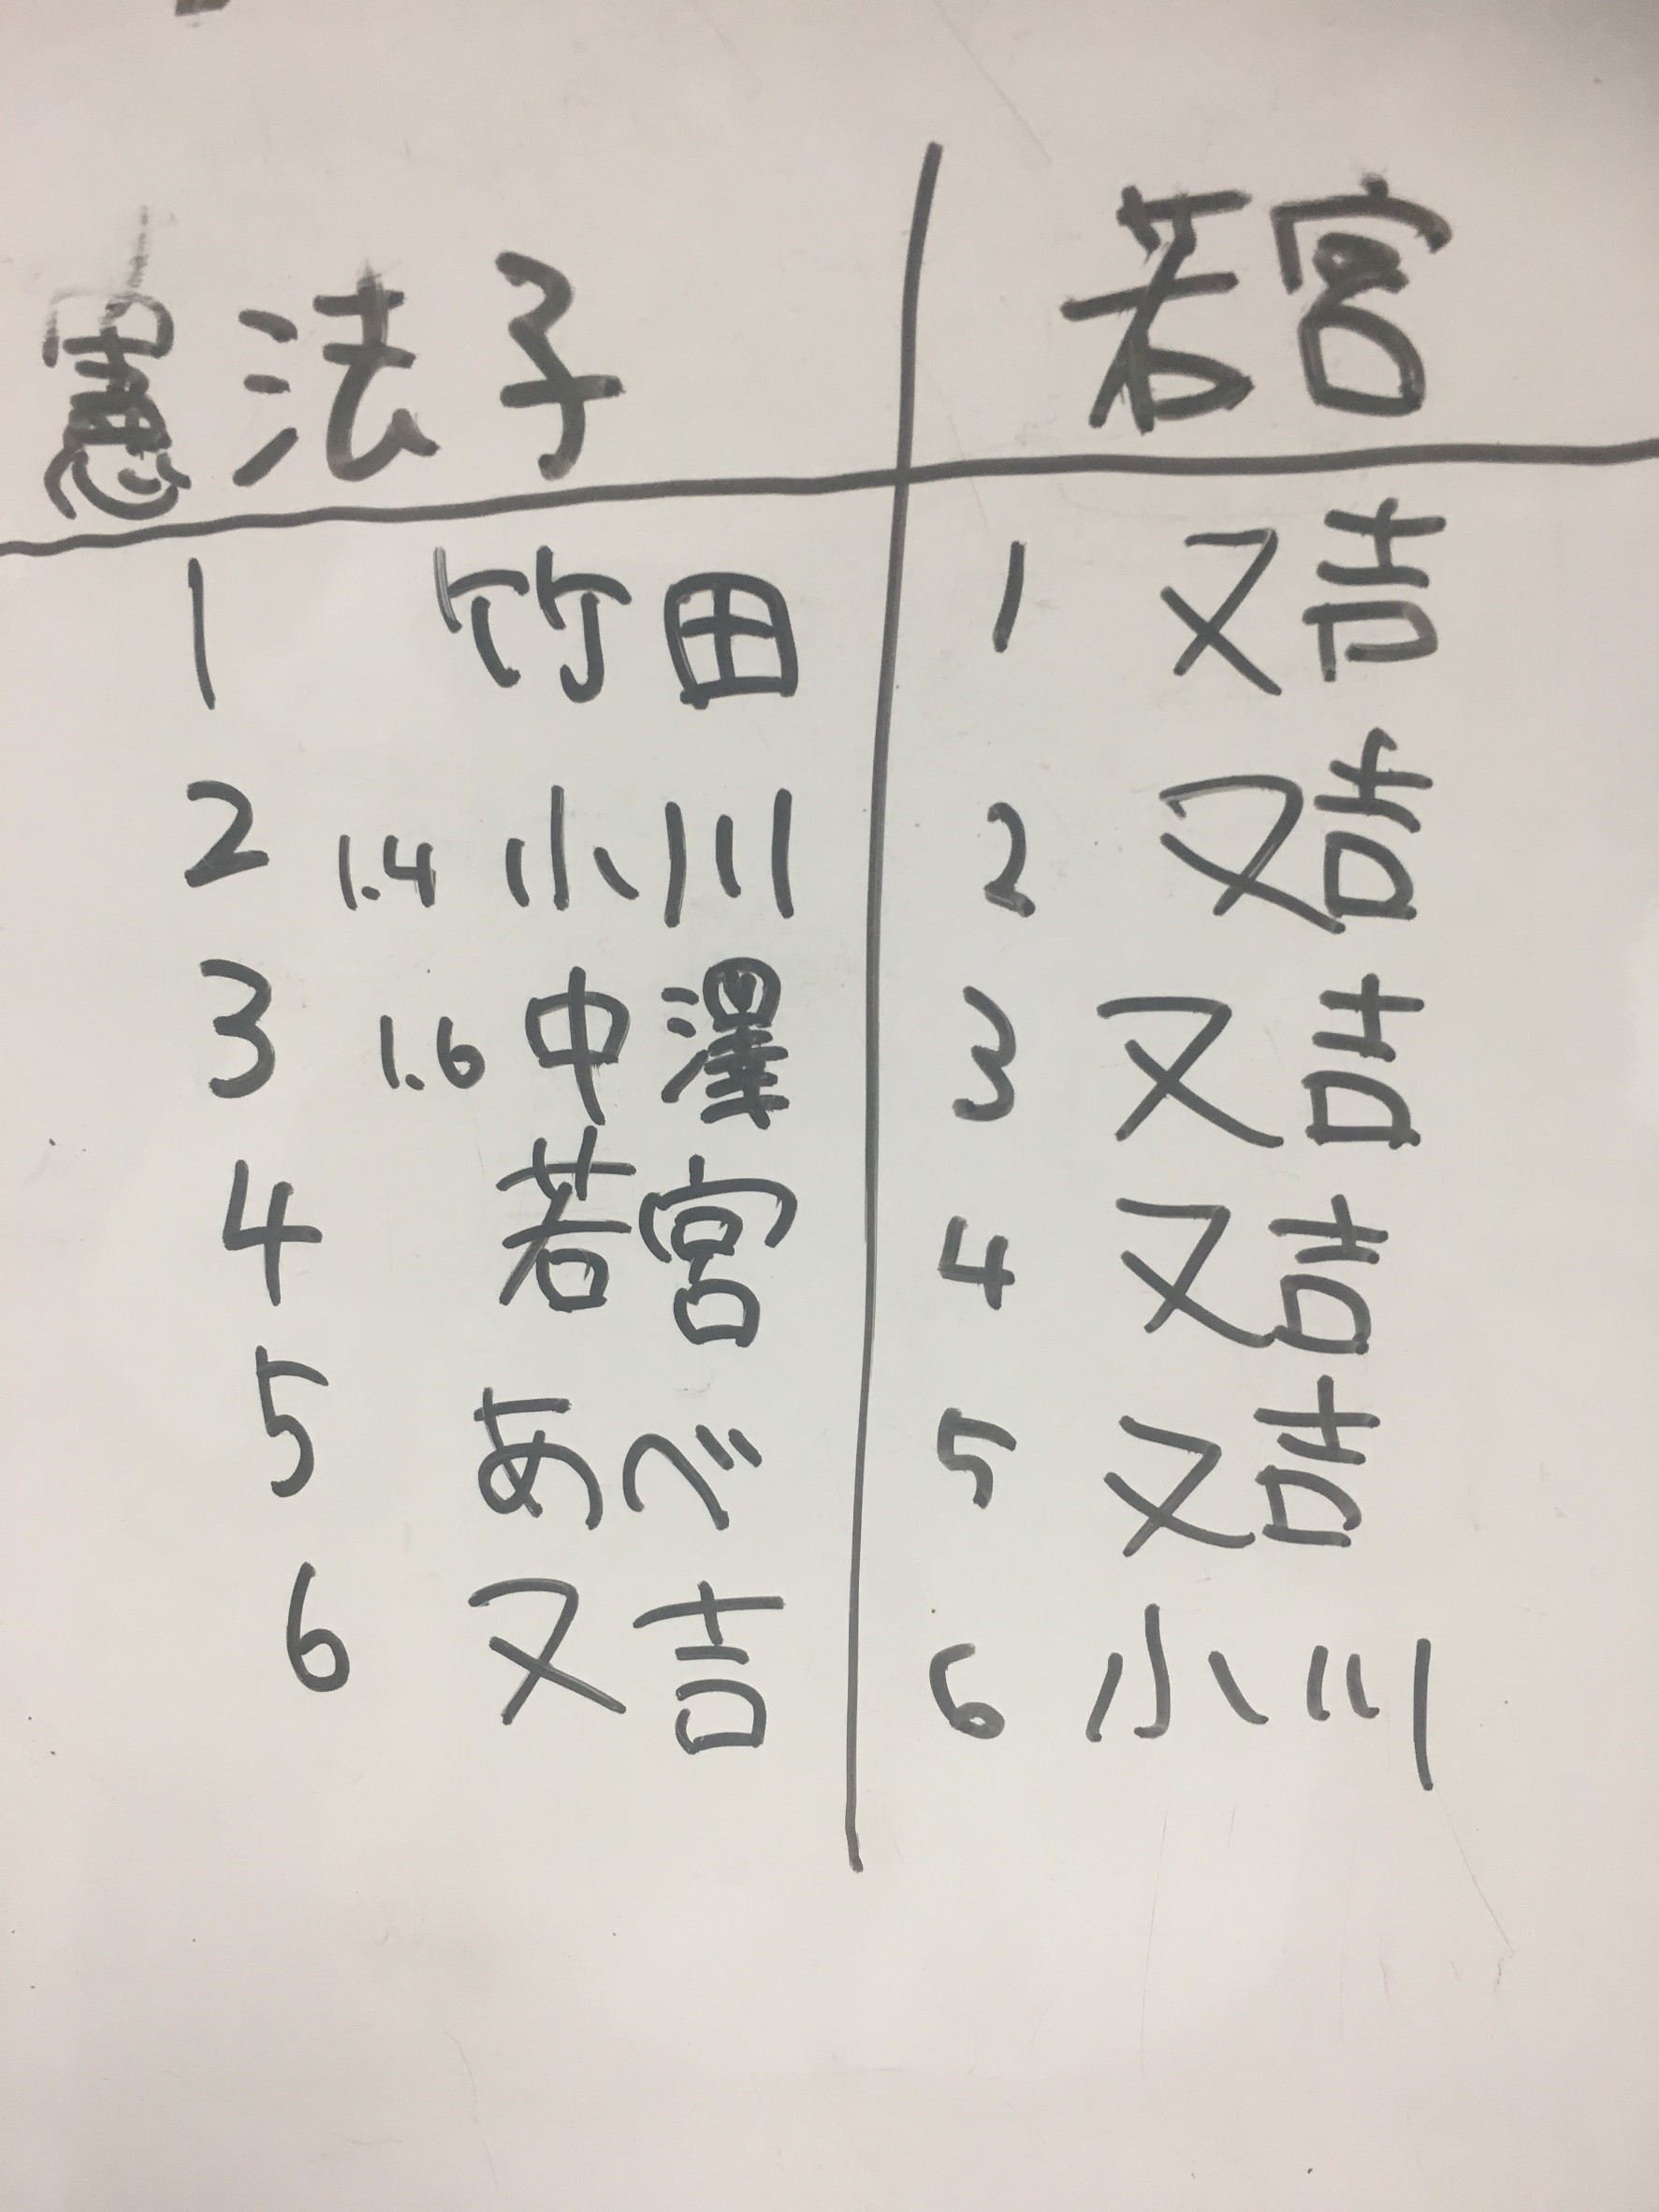 憲法子 若宮
1 竹田 1 又吉
2 1.4 小川 2 又吉
3 1.6 中澤 3 又吉
4 若宮 4 又吉
5 あべ 5 又吉
6 又吉 6 小川